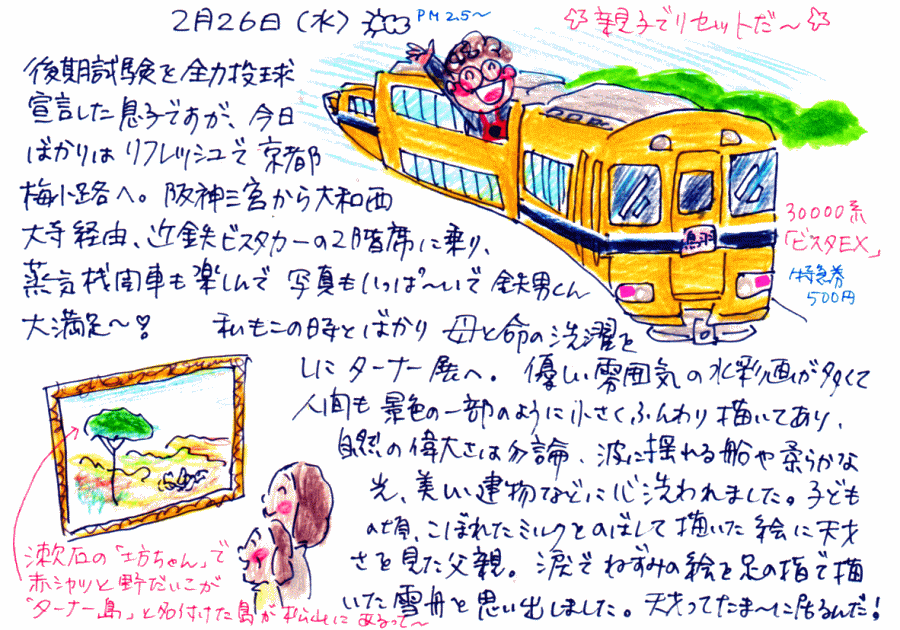 2月26日(水)
PM2.5〜
親子でリセットだ〜
後期試験を全力投球
宣言した息子ですが、今日
ばかりはリフレッシュで京都
梅小路へ。阪神三宮から大和西
大寺経由、近鉄ビスタカーの2階席に乗り、
蒸気機関車も楽しんで写真もいっぱ〜いで鉄男くん
大満足〜♡
私もこの時とばかり母と命の洗濯を
しにターナー展へ。優しい雰囲気の水彩画が多くて
人間も景色の一部のように小さくふんわり描いてあり、
自然の偉大さは勿論、波に揺れる船や柔らかな
光、美しい建物などに心洗われました。子ども
の頃、こぼれたミルクをのばして描いた絵に天才
さを見た父親。涙でねずみの絵を足の指で描
いた雪舟を思い出しました。天才ってたま〜に居るんだ!
鳥羽
30000系
「ビスタEX」
特急券
500円
漱石の「坊ちゃん」で
赤シャツと野だいこが
「ターナー島」と名付けた島が松山にあるって〜